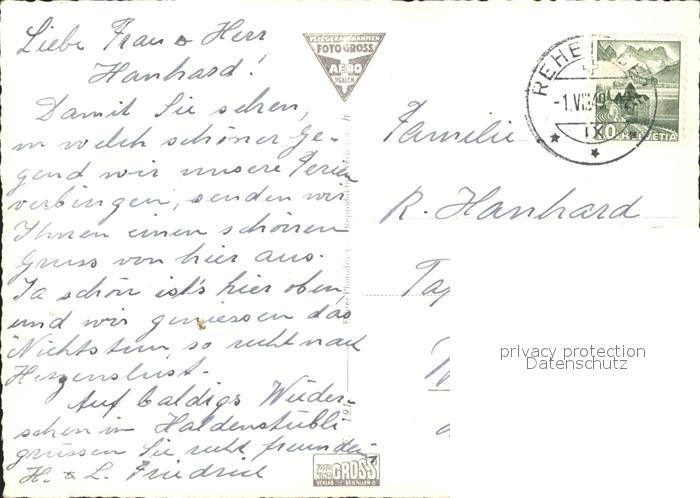 Liebe Frau & Herr
Hanhard!
Damit Sie sehen,
in welch schöner Ge-
gend wir unsere Ferien
verbingen, senden wir
Ihnen einen schönen
Gruss von hier aus.
Ja schön ist's hier oben
und wir geniessen das
Nichtstun, so recht nach
Herzenslust.
Auf baldigs Wieder-
sehen im Haldenstübli
grüssen Sie recht freundl.
H. & L. Friedrich
FOTO GROSS
AERO
GROSS
REHE
-1.VII.49
IX
10
HELVETIA
Familie
R. Hanhard
Ta
privacy protection
Datenschutz